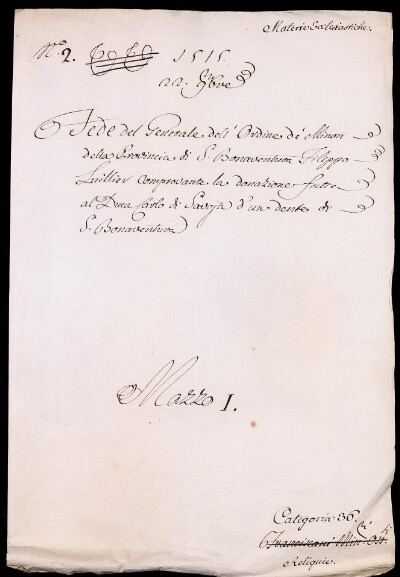 Materie Ecclesiastiche.
N.º 2. 1515.
22. 9bre
Fede del Generale dell' Ordine de' Minori
della Provincia di S. Bonaventura Filippo
Luillier comprovante la donazione fatta
al Duca Carlo di Savoja d'un dente di
S. Bonaventura
Mazzo I.
Categoria 36.
Franciscani Min.
Reliquie.